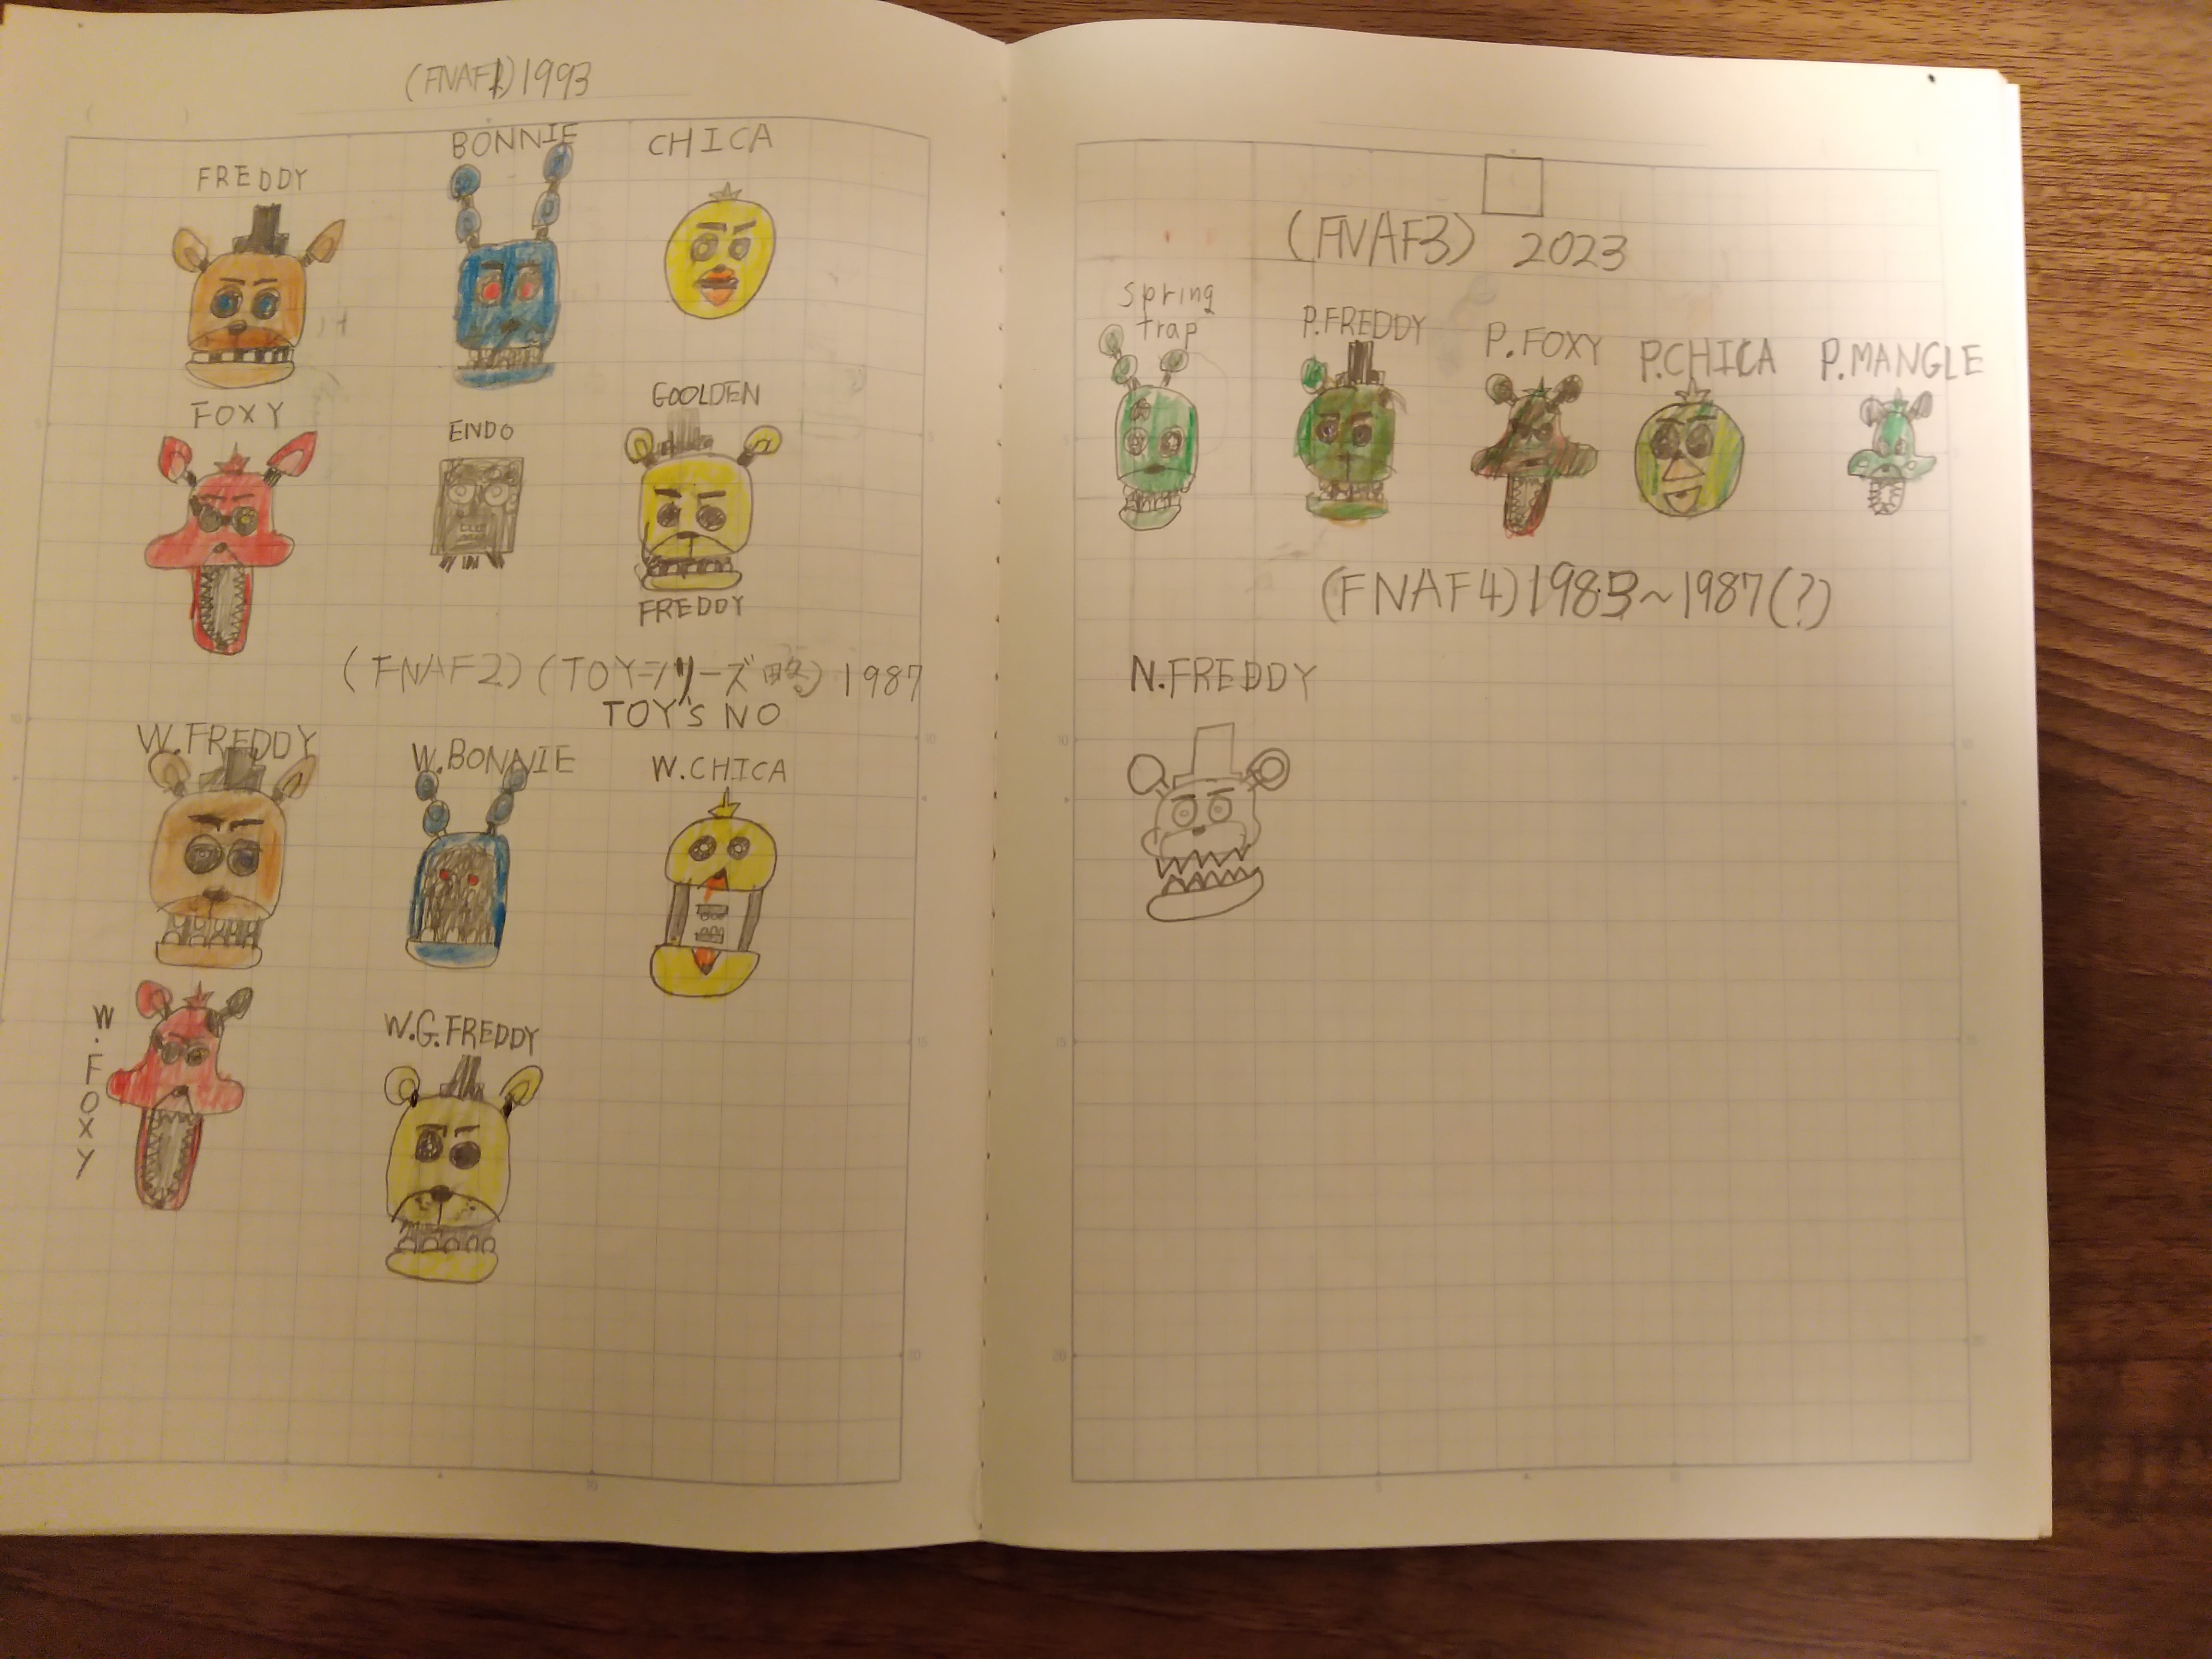 (FNAF1) 1993
FREDDY
BONNIE
CHICA
FOXY
ENDO
GOOLDEN
FREDDY
(FNAF2) (TOYシリーズ略) 1987
TOY's NO
W.FREDDY
W.BONNIE
W.CHICA
W.FOXY
W.G.FREDDY
(FNAF3) 2023
Spring
trap
P.FREDDY
P.FOXY
P.CHICA
P.MANGLE
(FNAF4) 1983~1987(?)
N.FREDDY